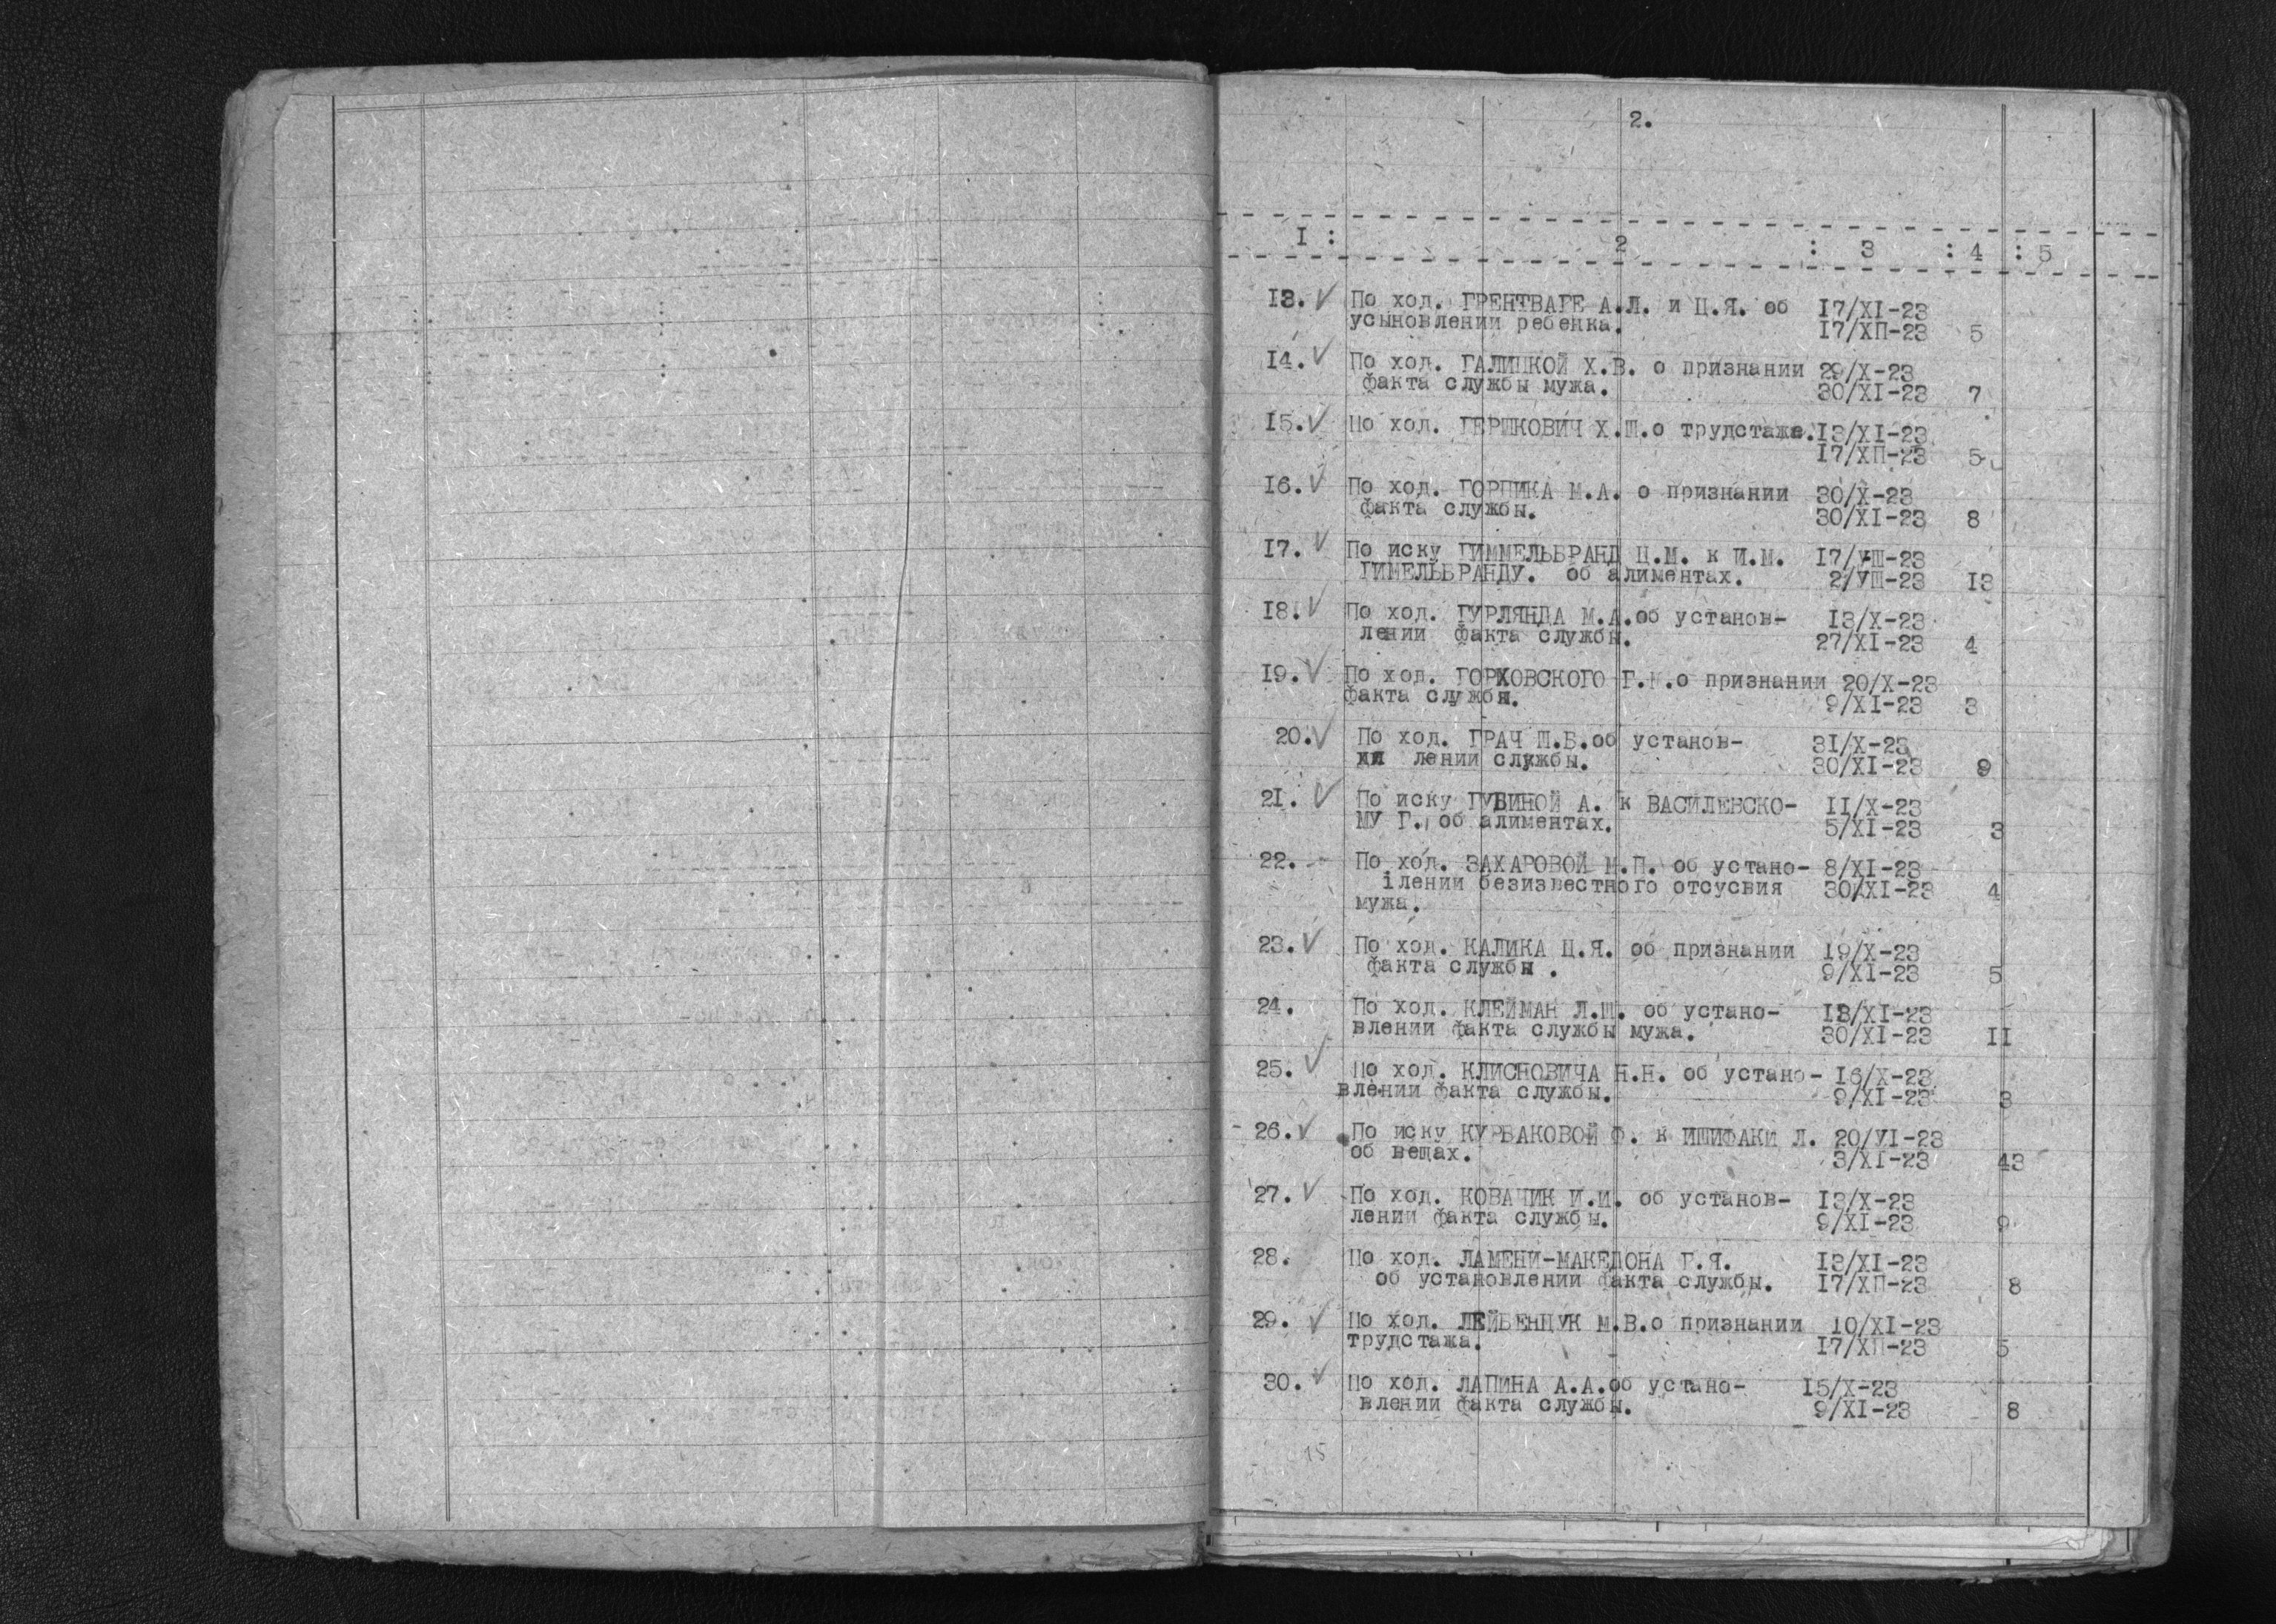 2.
I : 2 : 3 : 4 : 5
13. √ По ход. ГРЕНТВАГЕ А.Л. и Ц.Я. об 17/XI-23
усыновлении ребенка. 17/ХП-23 5
14. √ По ход. ГАЛИЦКОЙ Х.В. о признании 29/X-23
факта службы мужа. 30/XI-23 7
15. √ По ход. ГЕРШКОВИЧ Х.Ш.о трудстаже. 13/XI-23
17/ХП-23 5
16. √ По ход. ГОРПИКА М.А. о признании 30/X-23
факта службы. 30/XI-23 8
17. √ По иску ГИММЕЛЬБРАНД Ц.М. к И.М. 17/УШ-23
ГИМЕЛЬБРАНДУ. об алиментах. 2/УШ-23 13
18. √ По ход. ГУРЛЯНДА М.А.об установ- 13/X-23
лении факта службы. 27/XI-23 4
19. √ По ход. ГОРХОВСКОГО Г. .о признании 20/X-23
факта службы. 9/XI-23 3
20. √ По ход. ГРАЧ Ш.Б.об установ- 31/X-23
лении службы. 30/XI-23 9
21. √ По иску ГУБИНОЙ А. к ВАСИЛЕВСКО- II/X-23
МУ Г. об алиментах. 5/XI-23 3
22. По ход. ЗАХАРОВОЙ М.П. об устано- 8/XI-23
ілении безизвестного отсусвия 30/XI-23 4
мужа.
23. √ По ход. КАЛИКА Ц.Я. об признании 19/X-23
факта службы . 9/XI-23 5
24. По ход. КЛЕЙМАН Л.Ш. об устано- 13/XI-23
влении факта службы мужа. 30/XI-23 II
25. √ По ход. КЛИСНОВИЧА Н.Н. об устано- 16/X-23
влении факта службы. 9/XI-23 3
26. √ По иску КУРБАКОВОЙ Ф. к ИШИФАКИ Л. 20/УI-23
об вещах. 3/XI-23 43
27. √ По ход. КОВАЧИК И.И. об установ- 13/X-23
лении факта службы. 9/XI-23 9
28. По ход. ЛАМЕНИ-МАКЕДОНА Г.Я. 13/XI-23
об установлении факта службы. 17/ХП-23 8
29. √ По ход. ЛЕЙБЕНЦУК М.В.о признании 10/XI-23
трудстажа. 17/ХП-23 5
30. √ По ход. ЛАПИНА А.А.об устано- 15/X-23
влении факта службы. 9/XI-23 8
15